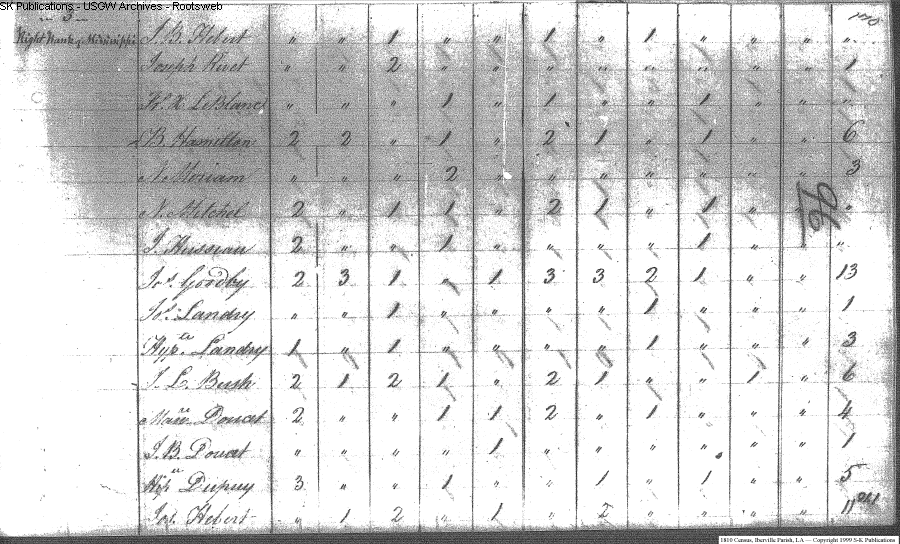 SK Publications - USGW Archives - Rootsweb
Right Bank of Mississippi J. B. Hebert " " 1 " " 1 " 1 " " " "
Joseph Rivet " " 2 " " " " " " " " 1
" " " 1 " 1 " " 1 " " "
B. Hamilton 2 2 " 1 " 2 1 " 1 " " 6
" " " 2 " " " " " " " 3
N. Mitchel 2 " 1 1 " 2 1 " 1 " " "
96
2 " " 1 " " " " 1 " " "
Jos. Gordby 2 3 1 " 1 3 3 2 1 " " 13
Jos. Landry " " 1 " " " " 1 " " " 1
Hypte Landry 1 " 1 " " " " 1 " " " 3
J. L. Bush 2 1 2 1 " 2 1 " " 1 " 6
Doucet 2 " " 1 1 2 " 1 " " " 4
J. B. Doucet " " " " 1 " " " " " " 1
Dupuy 3 " " 1 " " 1 " 1 " " 5
Jos. Hebert " 1 2 " 1 " 2 " " " " 11
1810 Census, Iberville Parish, LA — Copyright 1999 S-K Publications